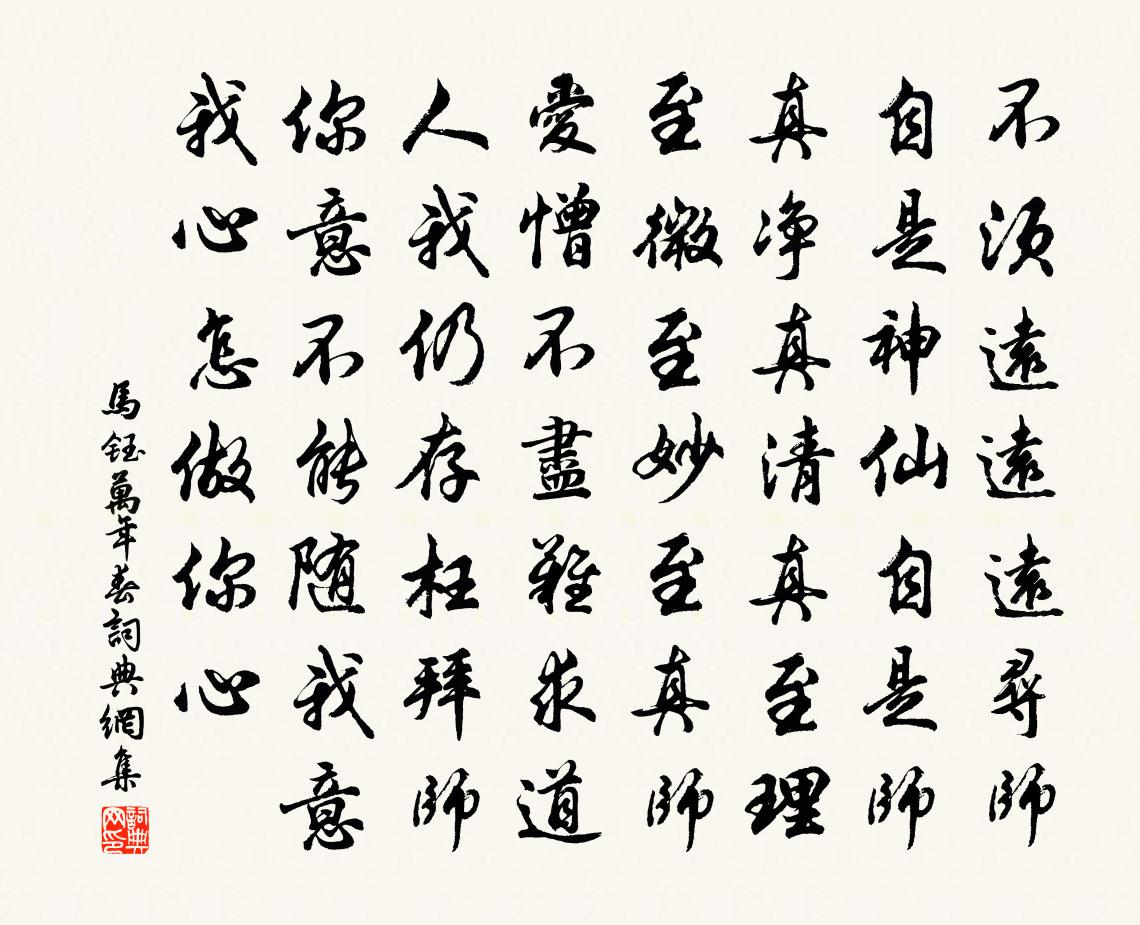 不須遠遠遠尋師
自是神仙自是師
真净真清真至理
至微至妙至真師
愛憎不盡難求道
人我仍存枉拜師
你意不能随我意
我心怎做你心
馬鈺萬年春詞典網集
詞典网印